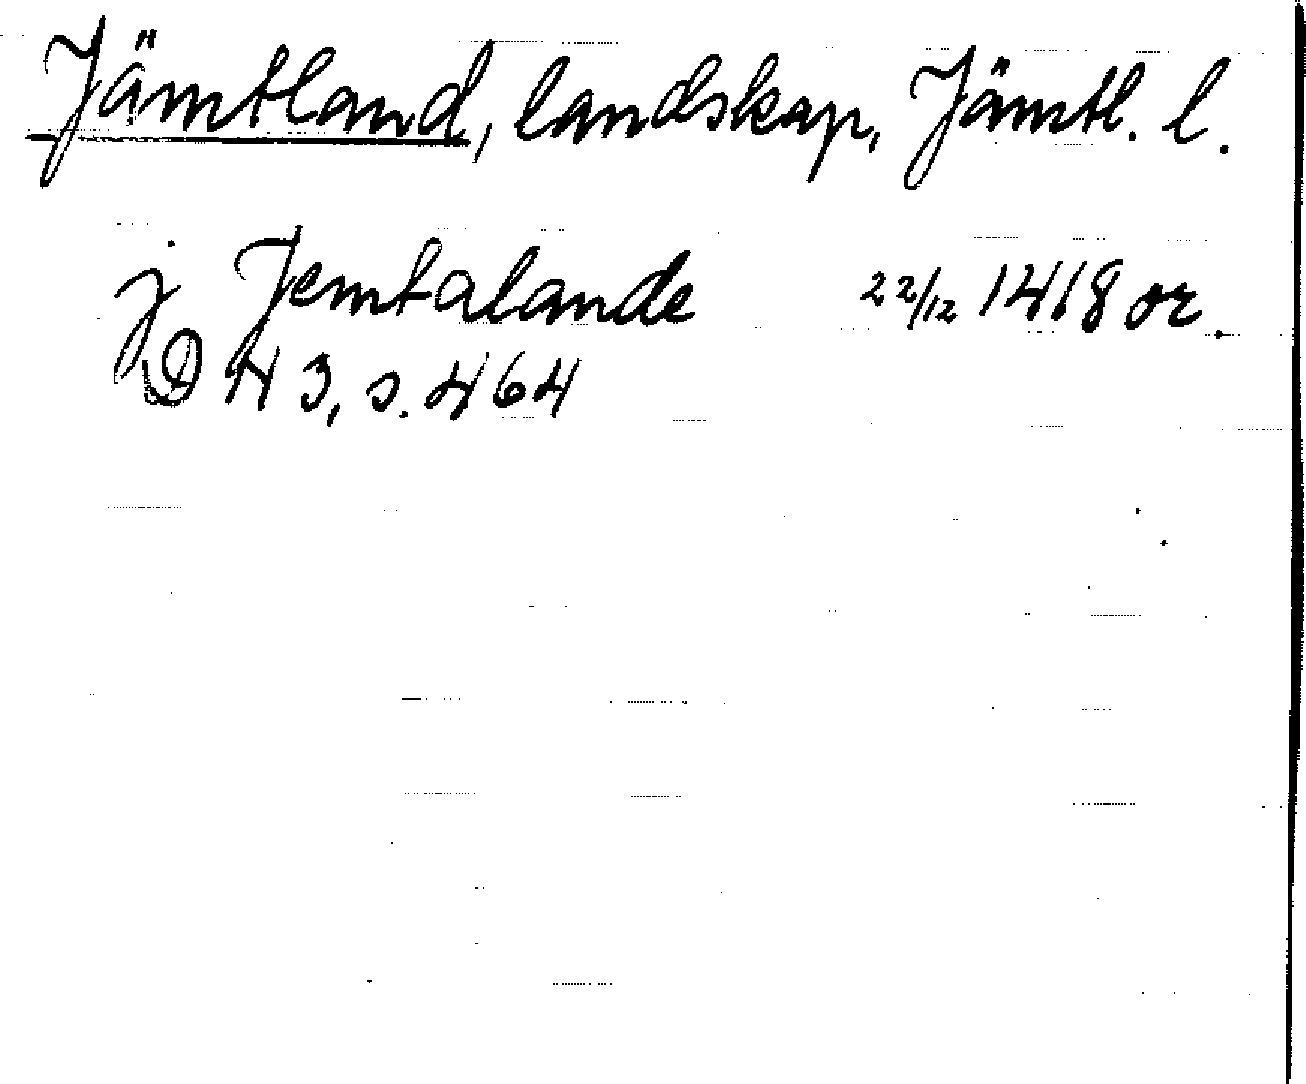 Jämtland, landskap, Jämtl. l.
j Jemtalande 22/12 1418 or.
DN 3, s. 464